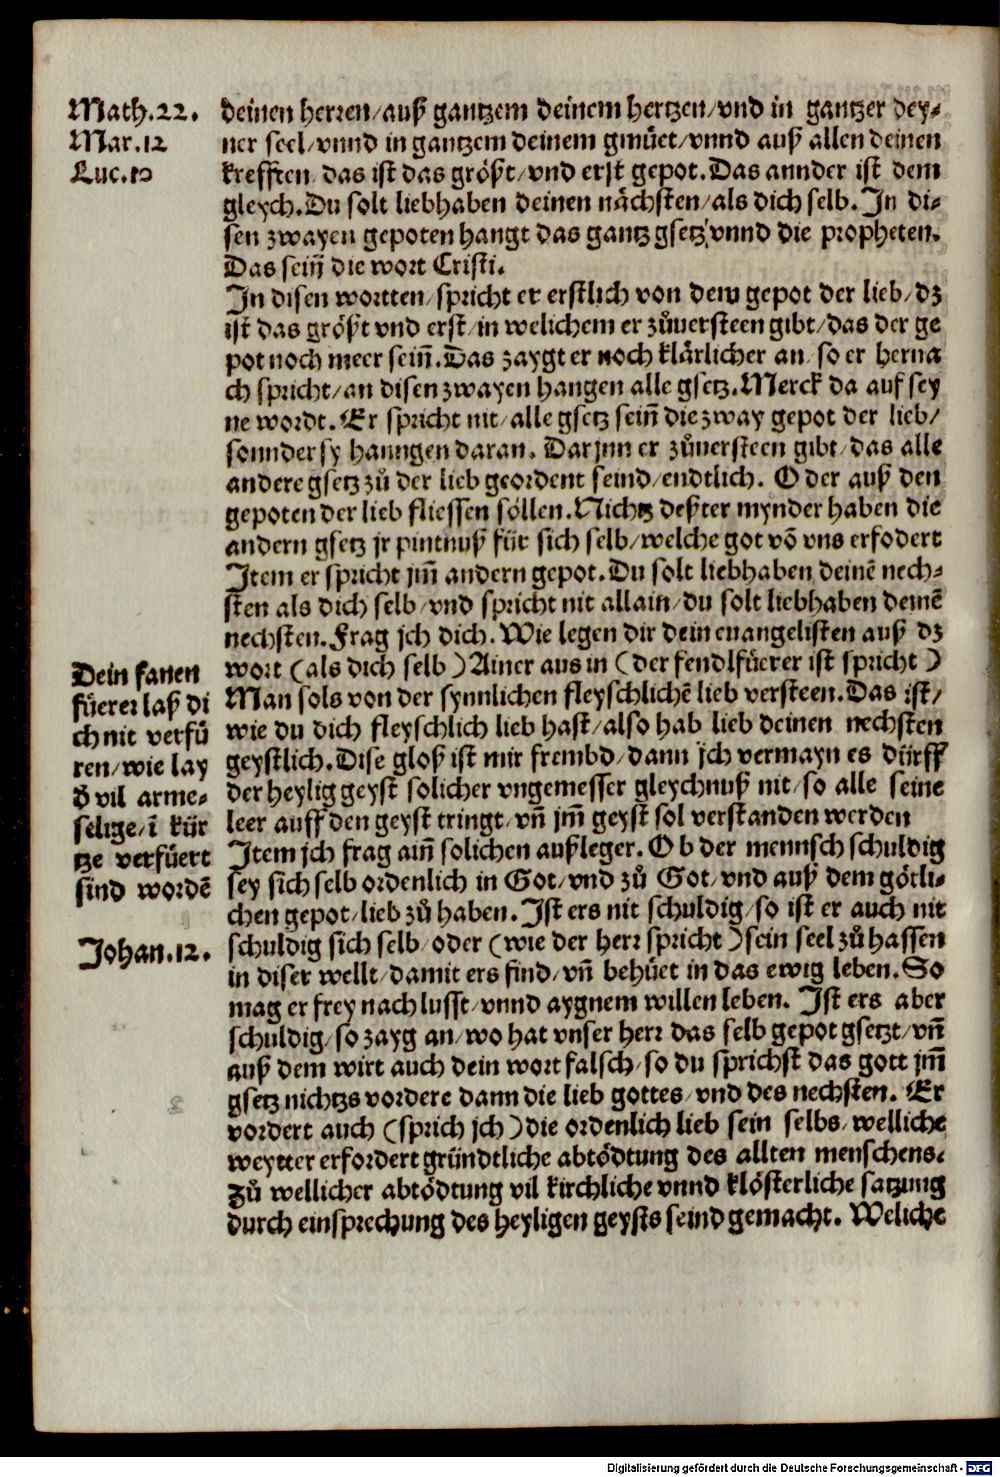 Math.22.
Mar.12
Luc.10
deinen herren/auß gantzem deinem hertzen/vnd in gantzer dey-
ner seel/vnnd in gantzem deinem gmüet/vnnd auß allen deinen
krefften das ist das größt/vnd erst gepot. Das annder ist dem
gleych. Du solt liebhaben deinen nächsten/als dich selb. In di-
sen zwayen gepoten hangt das gantz gsetz/vnnd die propheten.
Das sein̄ die wort Cristi.
In disen wortten/spricht er erstlich von dem gepot der lieb/dz
ist das größt vnd erst/in welichem er zůuersteen gibt/das der ge
pot noch meer sein̄. Das zaygt er noch klärlicher an/so er herna
ch spricht/an disen zwayen hangen alle gsetz. Merck da auf sey
ne wordt. Er spricht nit/alle gsetz sein̄ die zway gepot der lieb/
sonnder sy hanngen daran. Darjnn er zůuersteen gibt/das alle
andere gsetz zů der lieb geordent seind/endtlich. Oder auß den
gepoten der lieb fliessen söllen. Nichtz deßter mynder haben die
andern gsetz jr pintnuß für sich selb/welche got vō vns erfodert
Item er spricht jm̄ andern gepot. Du solt liebhaben deinē nech-
sten als dich selb/vnd spricht nit allain/du solt liebhaben deinē
nechsten. Frag jch dich. Wie legen dir dein euangelisten auß dz
wort (als dich selb) Ainer aus in (der fendlfüerer ist spricht)
Man sols von der synnlichen fleyschlichē lieb versteen. Das ist/
wie du dich fleyschlich lieb hast/also hab lieb deinen nechsten
geystlich. Dise gloß ist mir frembd/dann jch vermayn es dürff
der heylig geyst solicher vngemesser gleychnuß nit/so alle seine
leer auff den geyst tringt/vn̄ jm̄ geyst sol verstanden werden
Dein fanen
füerer laß di
ch nit verfü
ren/wie lay
d̄ vil arme-
selige/ī kür
tze verfüert
sind wordē
Item jch frag ain̄ solichen außleger. Ob der mennsch schuldig
sey sich selb ordenlich in Got/vnd zů Got/vnd auß dem götli-
chen gepot/lieb zů haben. Ist ers nit schuldig/so ist er auch nit
schuldig sich selb/oder (wie der herr spricht) sein seel zů hassen
Johan.12.
in diser wellt/damit ers find/vn̄ behüet in das ewig leben. So
mag er frey nach lusst/vnnd aygnem willen leben. Ist ers aber
schuldig/so zayg an/wo hat vnser herr das selb gepot gsetzt/vn̄
auß dem wirt auch dein wort falsch/so du sprichst das gott jm̄
gsetz nichtzs vordere dann die lieb gottes/vnd des nechsten. Er
vordert auch (sprich jch) die ordenlich lieb sein selbs/welliche
weytter erfordert gründtliche abtödtung des allten menschens.
Zů wellicher abtödtung vil kirchliche vnnd klösterliche satzung
durch einsprechung des heyligen geysts seind gemacht. Weliche
Digitalisierung gefördert durch die Deutsche Forschungsgemeinschaft - DFG